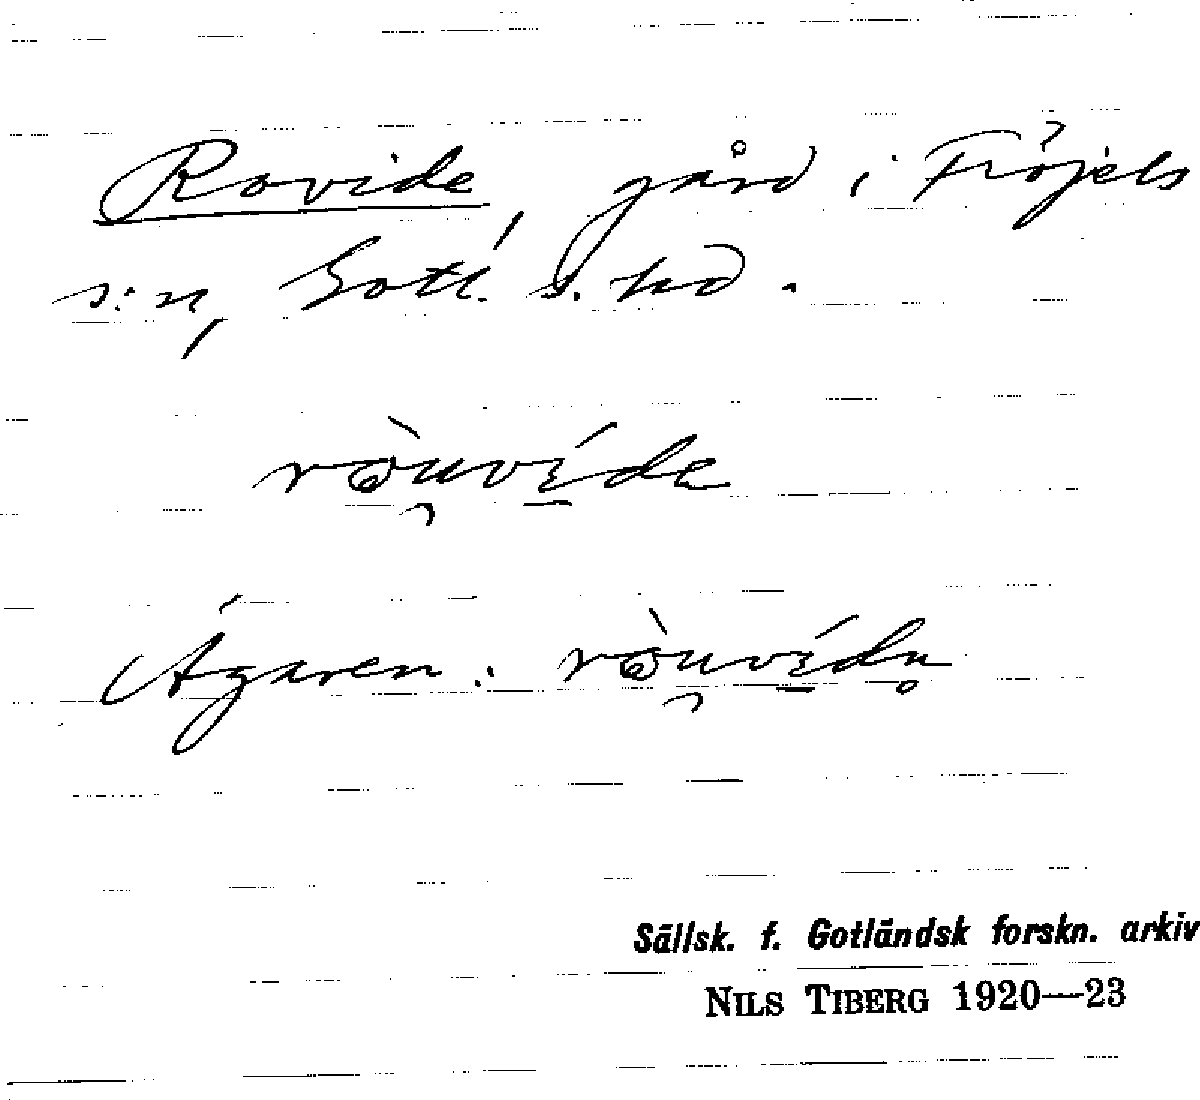 Rovide, gård i Fröjels
s:n, Gotl. s. hd.
ròu̯ví̱de
Ägaren: ròu̯ví̱dn̥
Sällsk. f. Gotländsk forskn. arkiv
NILS TIBERG 1920—23